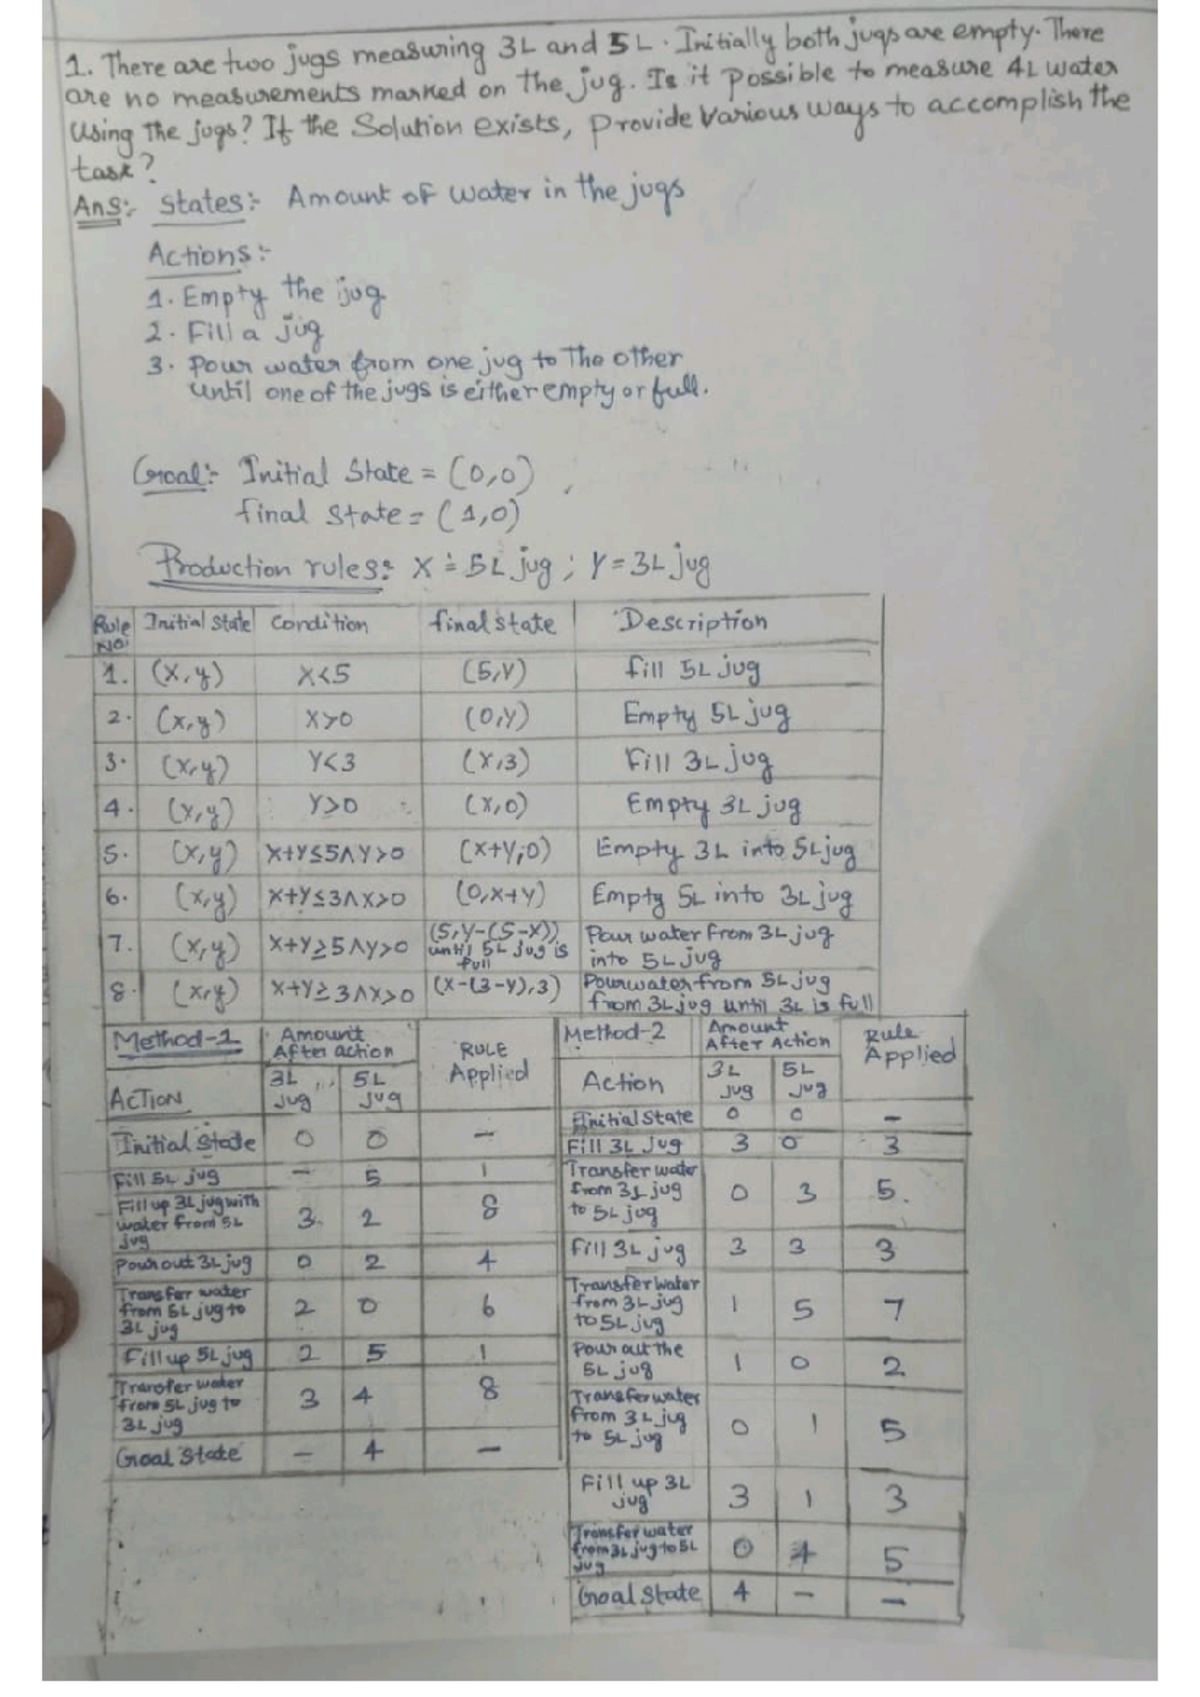 1. There are two jugs measuring 3L and 5L. Initially both jugs are empty. There
are no measurements marked on the jug. Is it possible to measure 4L water
using the jugs? If the solution exists, provide various ways to accomplish the
task?
Ans:- States:- Amount of water in the jugs
Actions:-
1. Empty the jug
2. Fill a jug
3. Pour water from one jug to the other
until one of the jugs is either empty or full.
Goal:- Initial State = (0,0)
final state = (1,0)
Production rules:- X = 5L jug ; Y = 3L jug
Rule No. Initial State Condition final state Description
1. (x,y) X<5 (5,Y) fill 5L jug
2. (x,y) X>0 (0,Y) Empty 5L jug
3. (x,y) Y<3 (X,3) Fill 3L jug
4. (x,y) Y>0 (X,0) Empty 3L jug
5. (x,y) X+Y≤5∧Y>0 (X+Y,0) Empty 3L into 5L jug
6. (x,y) X+Y≤3∧X>0 (0,X+Y) Empty 5L into 3L jug
7. (x,y) X+Y≥5∧Y>0 (5,Y-(5-X)) until 5L jug is full Pour water from 3L jug into 5L jug
8. (x,y) X+Y≥3∧X>0 (X-(3-Y),3) Pour water from 5L jug from 3L jug until 3L is full
Method-1 Amount After action RULE Applied
ACTION 3L jug 5L jug
Initial State 0 0 -
Fill 5L jug - 5 1
Fill up 3L jug with water from 5L jug 3 2 8
Pour out 3L jug 0 2 4
Transfer water from 5L jug to 3L jug 2 0 6
Fill up 5L jug 2 5 1
Transfer water from 5L jug to 3L jug 3 4 8
Goal State - 4 -
Method-2 Amount After Action Rule Applied
Action 3L jug 5L jug
Initial State 0 0 -
Fill 3L Jug 3 0 3
Transfer water from 3L jug to 5L jug 0 3 5.
Fill 3L jug 3 3 3
Transfer water from 3L jug to 5L jug 1 5 7
Pour out the 5L jug 1 0 2
Transfer water from 3L jug to 5L jug 0 1 5
Fill up 3L jug 3 1 3
Transfer water from 3L jug to 5L jug 0 4 5
Goal State 4 - -